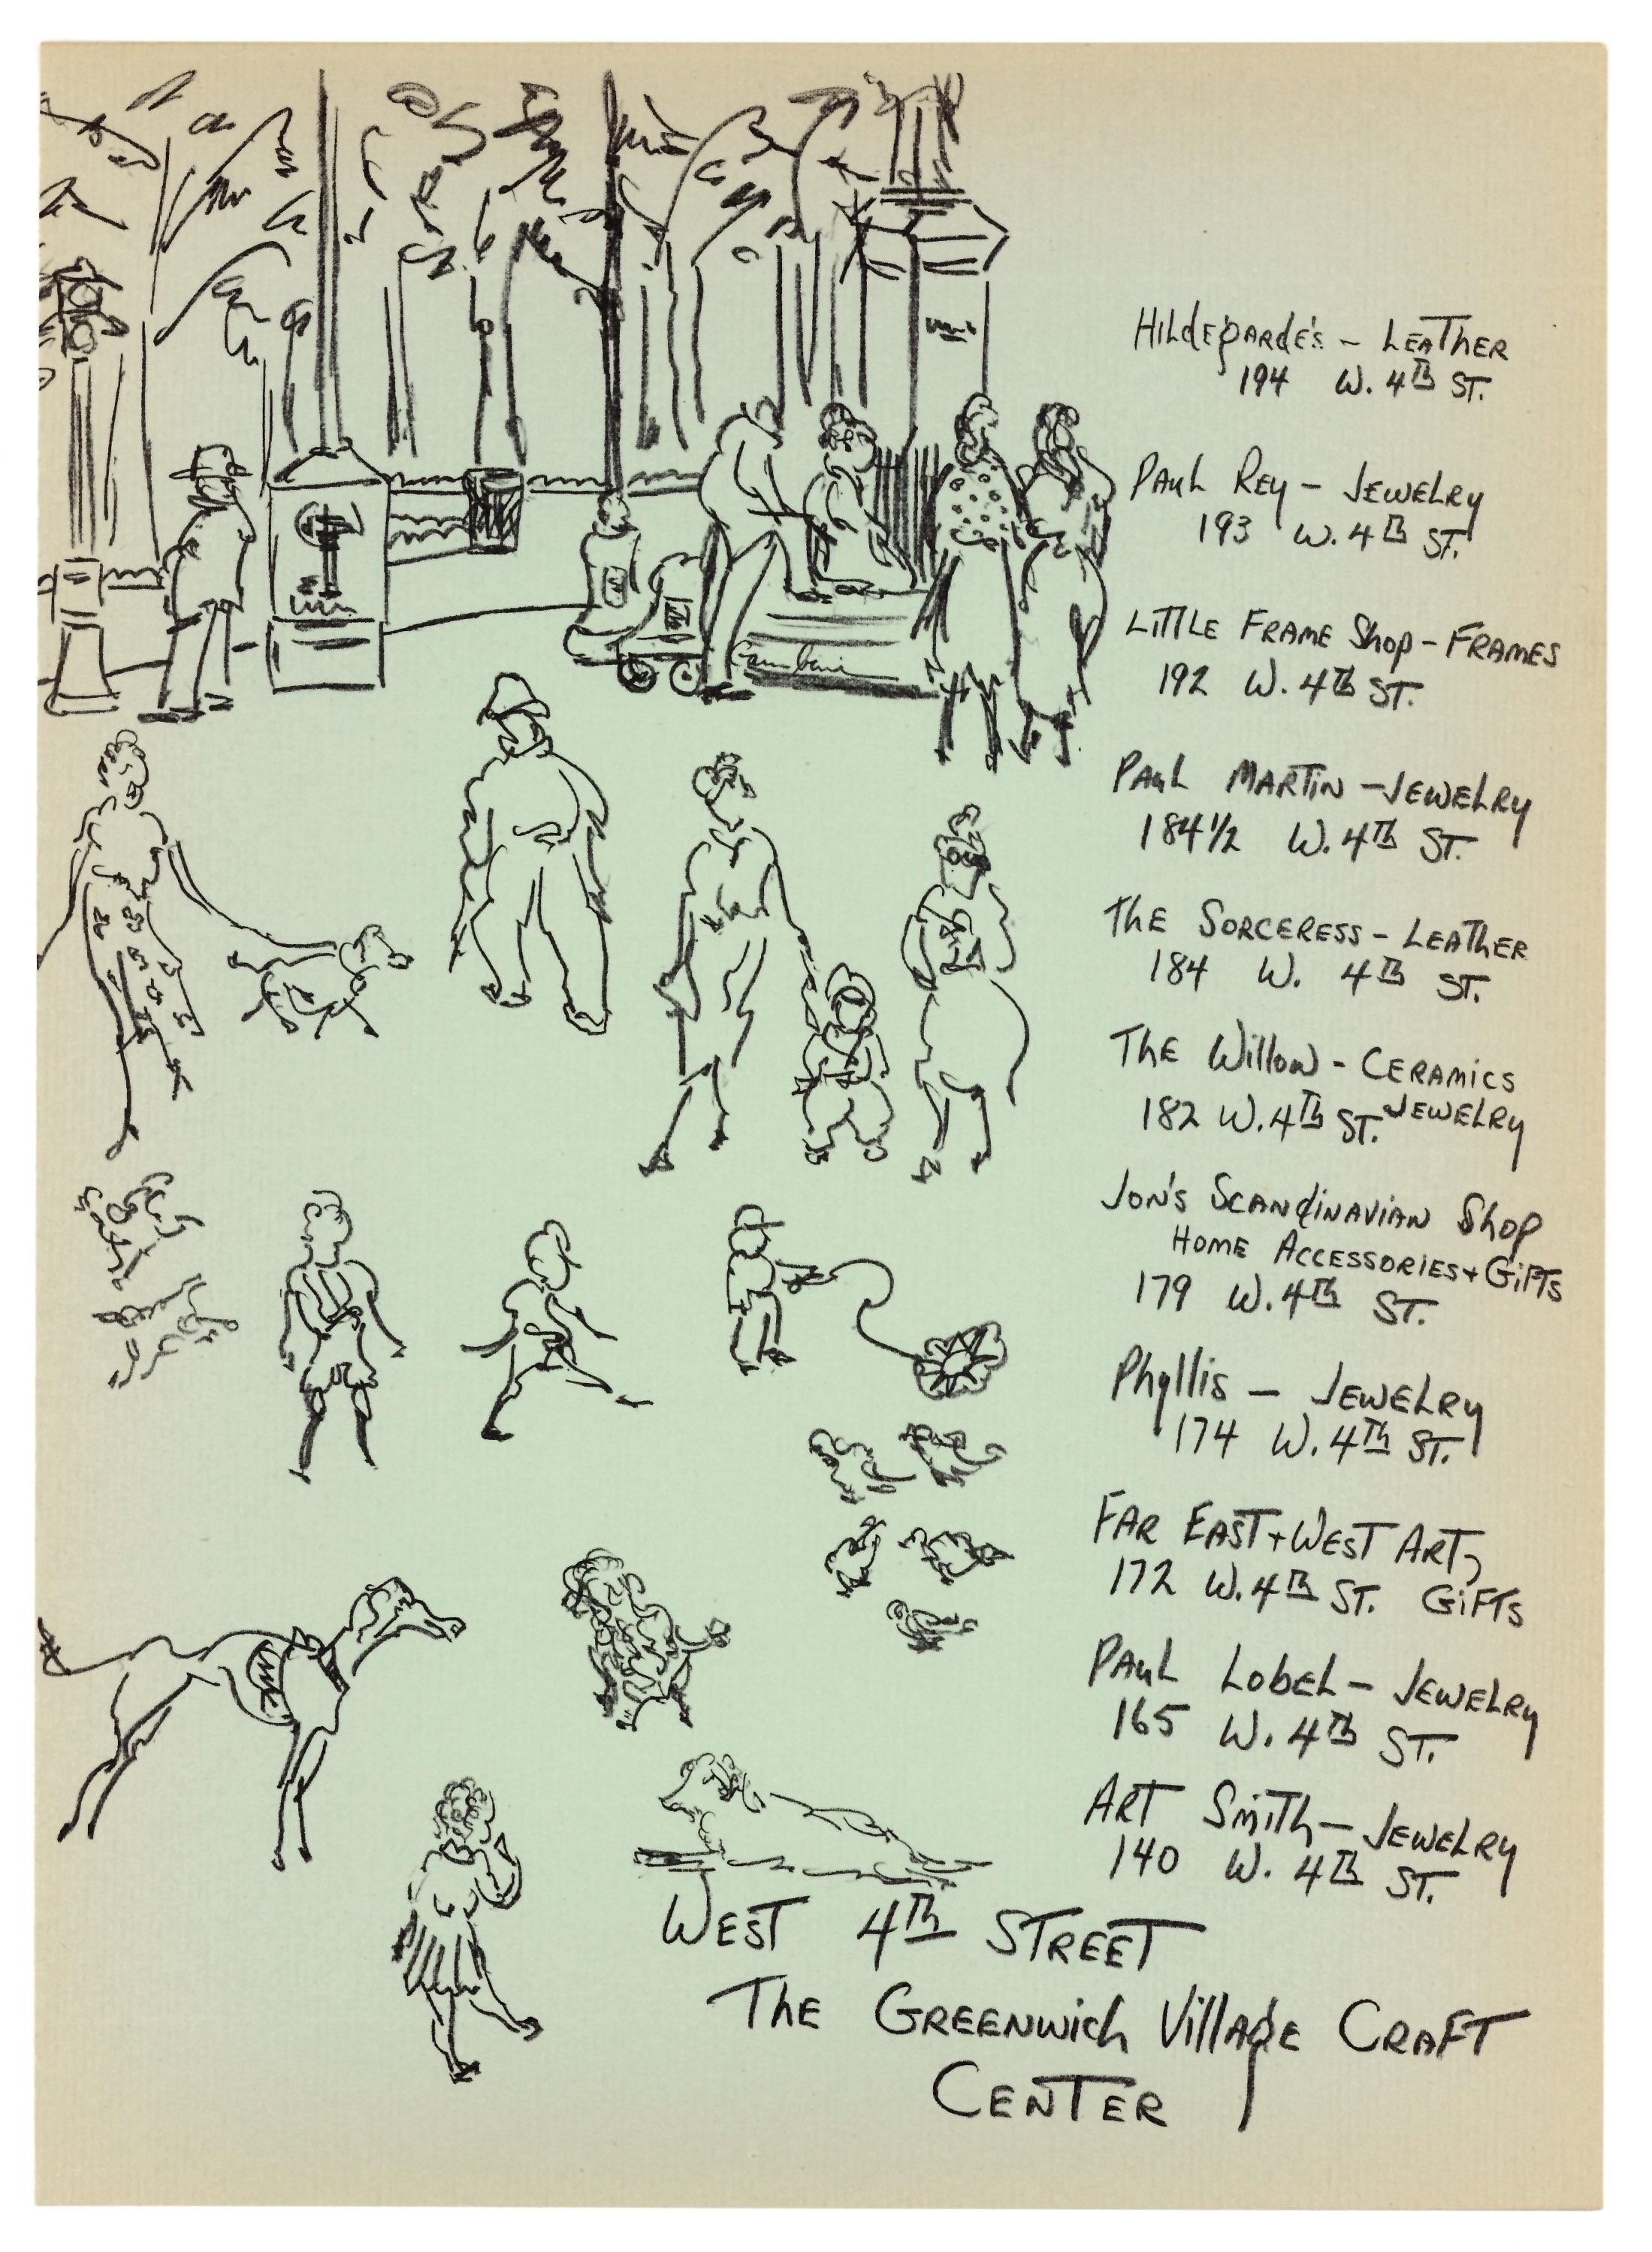 HildegardE's - LEATHER
194 W. 4TH ST.
PAUL REY - JEWELRY
193 W. 4TH ST.
LITTLE FRAME Shop - FRAMES
192 W. 4TH ST.
PAUL MARTIN - JEWELRY
184 1/2 W. 4TH ST.
ThE SORCERESS - LEATHER
184 W. 4TH ST.
ThE Willow - CERAMICS
182 W. 4TH ST. JEWELRY
JON'S SCANdINAVIAN Shop
HOME ACCESSORIES + GiFTS
179 W. 4TH ST.
Phyllis - JEWELRY
174 W. 4Th ST.
FAR EAST + WEST ART,
172 W. 4TH ST. GiFTS
PAUL LobEL - JEWELRY
165 W. 4TH ST.
ART SmiTh - JEWELRY
140 W. 4TH ST.
WEST 4TH STREET
ThE GREENWICh VillAgE CRAFT
CENTER